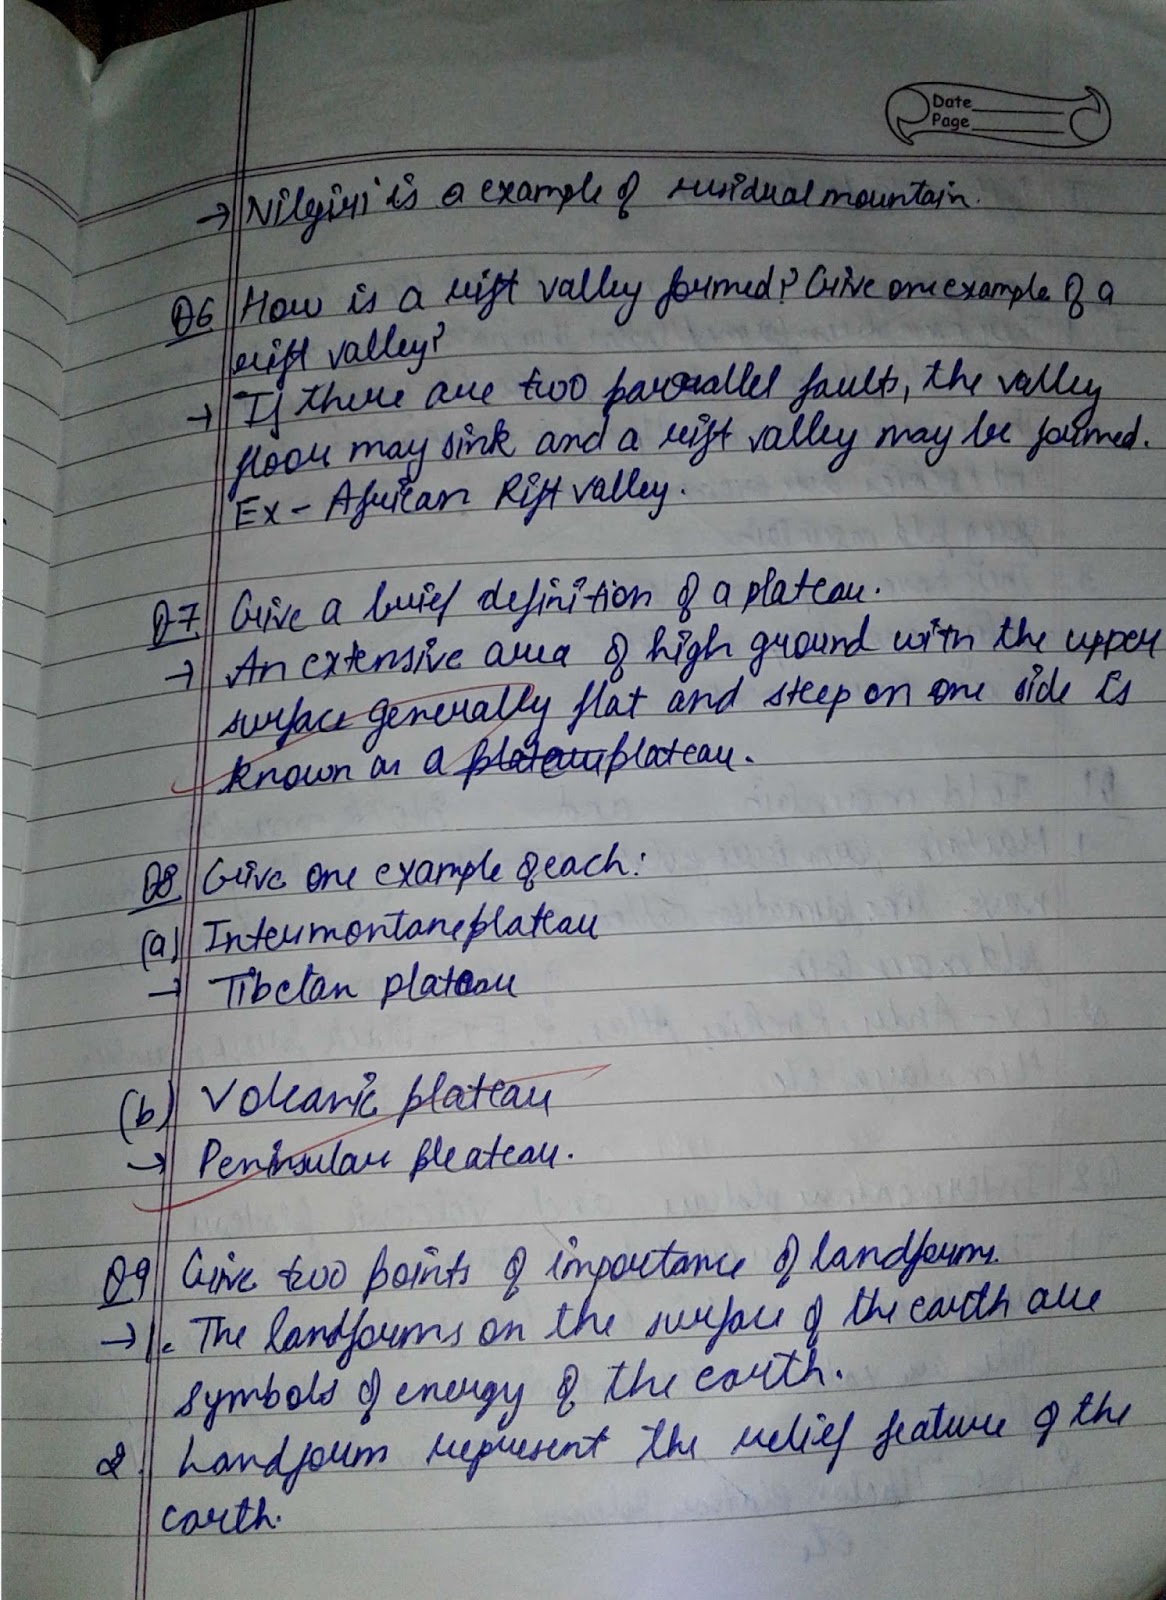 Date
Page
→ Nilgiri is a example of residual mountain.
Q6 How is a rift valley formed? Give one example of a
rift valley?
→ If there are two parallel faults, the valley
floor may sink and a rift valley may be formed.
Ex - African Rift valley.
Q7 Give a brief definition of a plateau.
→ An extensive area of high ground with the upper
surface generally flat and steep on one side is
known as a plateau plateau.
Q8 Give one example of each:
(a) Intermontane plateau
→ Tibetan plateau
(b) Volcanic plateau
→ Peninsular pleateau.
Q9 Give two points of importance of landforms.
→ 1. The landforms on the surface of the earth are
symbols of energy of the earth.
2. Landform represent the relief feature of the
earth.